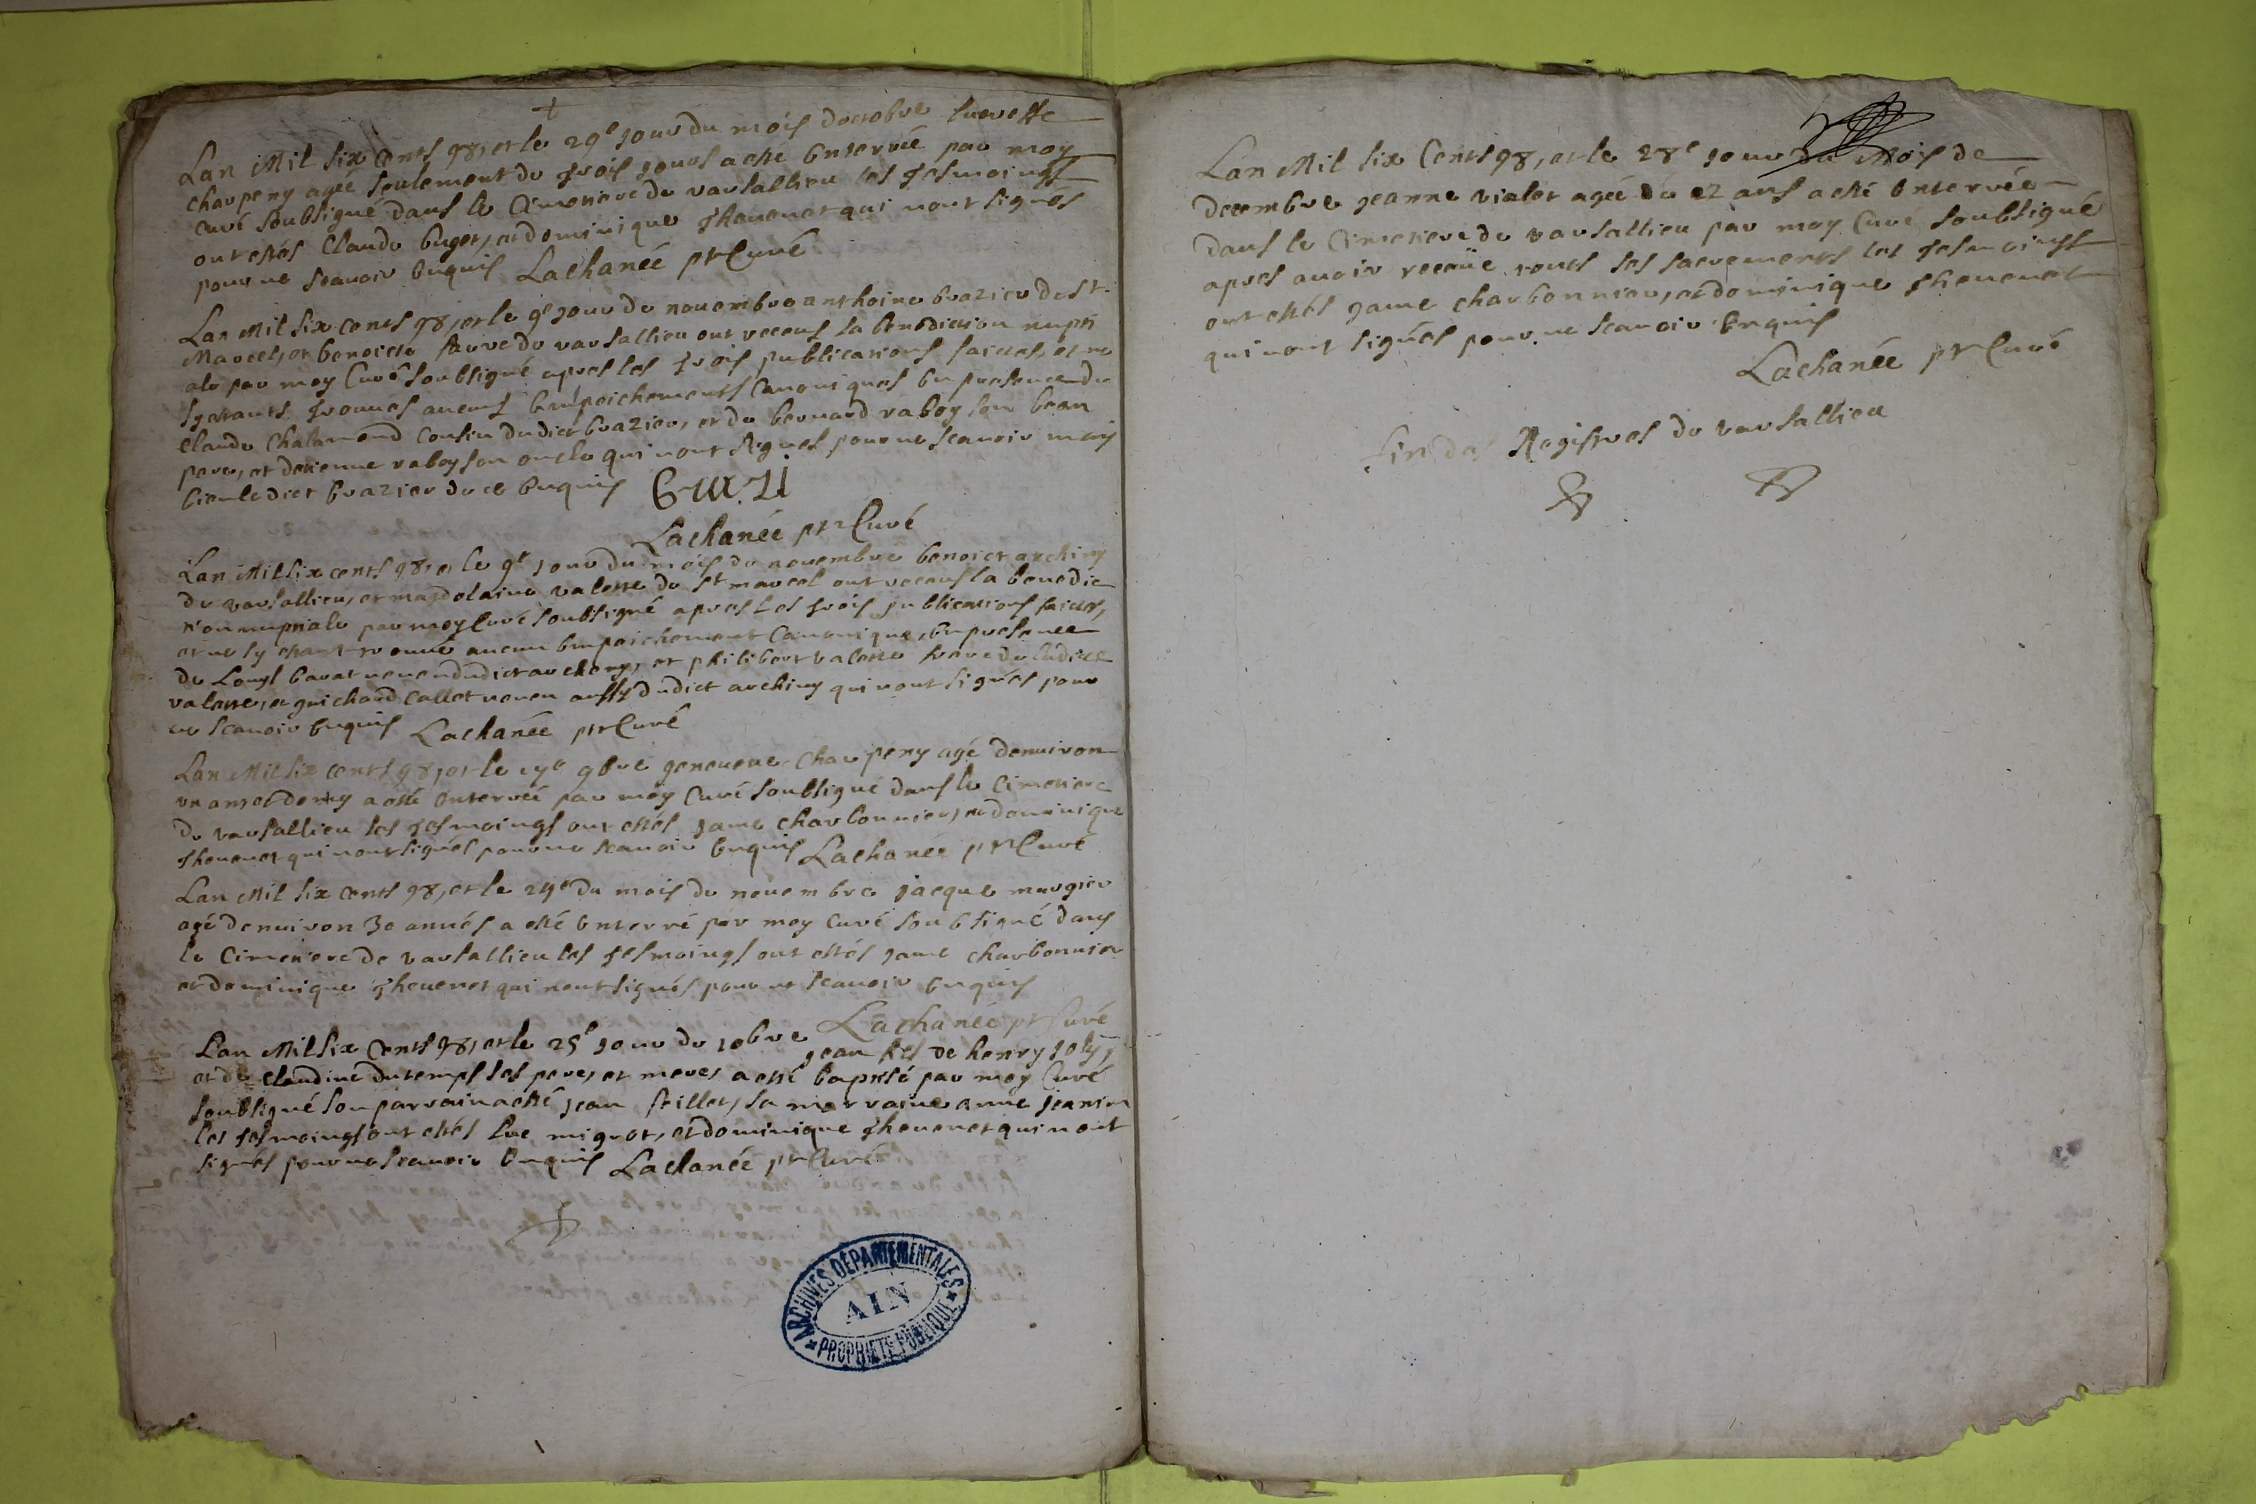 Lan Mil six cents 98, et le 29e jour du mois doctobre
charpeny agée seulement de trois jours a esté enterrée par moy
curé soubsigné dans le cimetiere de varsallieu les tesmoings
ont estés Claude buget, et dominique thevenet qui nont signés
pour ne scavoir enquis Lachanée ptr Curé
Lan Mil six cents 98, et le 9e jour de novembre anthoine brazier de st
Marcel, et benoicte favre de varsallieu ont receus la benediction nupti
ale par moy Curé soubsigné apres les trois publications faictes, et ne
sy estants trouves aucuns empeichements canoniques en presence de
Claude Chalamond cousin dudict brazier, et de bernard raboy son beau
pere, et detienne raboy son oncle qui nont signes pour ne scavoir mais
bien ledict brazier de ce enquis
Lachanée ptr Curé
Lan Mil six cents 98, et le 9e jour du mois de novembre benoict archiny
de varsallieu, et magdelaine valette de st marcel ont receus la benedic
tion nuptiale par moy Curé soubsigné apres les trois publications faictes,
et ne sy estant trouvé aucun empeichement canonique, en presence
de Louys barat neveu dudict archiny, et philibert valette frere de ladicte
valette, et guichard callet neveu aussy dudict archiny qui nont signés pour
ne scavoir enquis Lachanée ptr Curé
Lan Mil six cents 98, et le 9bre geneveve charpeny agé denviron
un an et demy a esté enterrée par moy Curé soubsigné dans le Cimetiere
de varsallieu les tesmoings ont estés jame charbonnier, et dominique
thevenet qui nont signés pour ne scavoir enquis Lachanée ptr Curé
Lan Mil six cents 98, et le 24e du mois de novembre jacque murgier
agé denviron 30 années a esté enterré par moy curé soubsigné dans
le Cimetiere de varsallieu les tesmoings ont estés jame charbonnier
et dominique thevenet qui nont signés pour ne scavoir enquis
Lachanée ptr Curé
Lan Mil six cents 98, et le 25e jour de 10bre jean fils de henry joly,
et de claudine dutemps ses pere, et mere, a esté baptisé par moy Curé
soubsigné son parrain a esté jean, sa marraine anne jeanin
les tesmoings ont estés luc migrot, et dominique thevenet qui nont
signés pour ne scavoir enquis Lachanée ptr Curé
ARCHIVES DÉPARTEMENTALES
AIN
PROPRIÉTÉ PUBLIQUE
Lan Mil six Cents 98, et le 28e jour du Mois de
decembre jeanne violet agée de 22 ans a esté enterrée
dans le cimetiere de varsallieu par moy Curé soubsigné
apres avoir receue touts ses sacrements les tesmoings
ont estés jame charbonnier, et dominique thevenet
qui nont signés pour ne scavoir enquis
Lachanée ptr Curé
fin des Registres de varsallieu